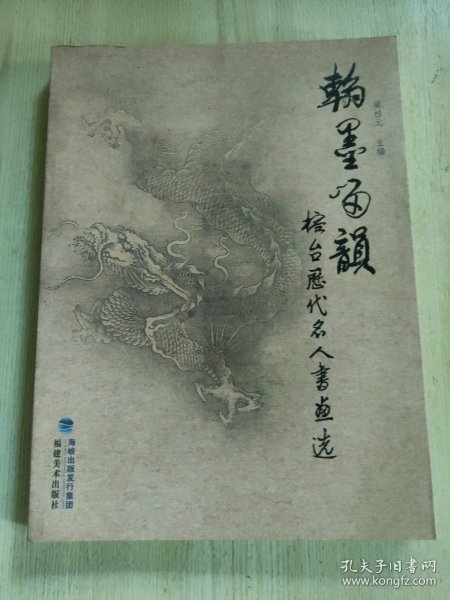 翰墨留韻
主编
榕台歷代名人書画选
海峡出版发行集团
福建美术出版社
孔夫子旧书网
www.kongfz.com